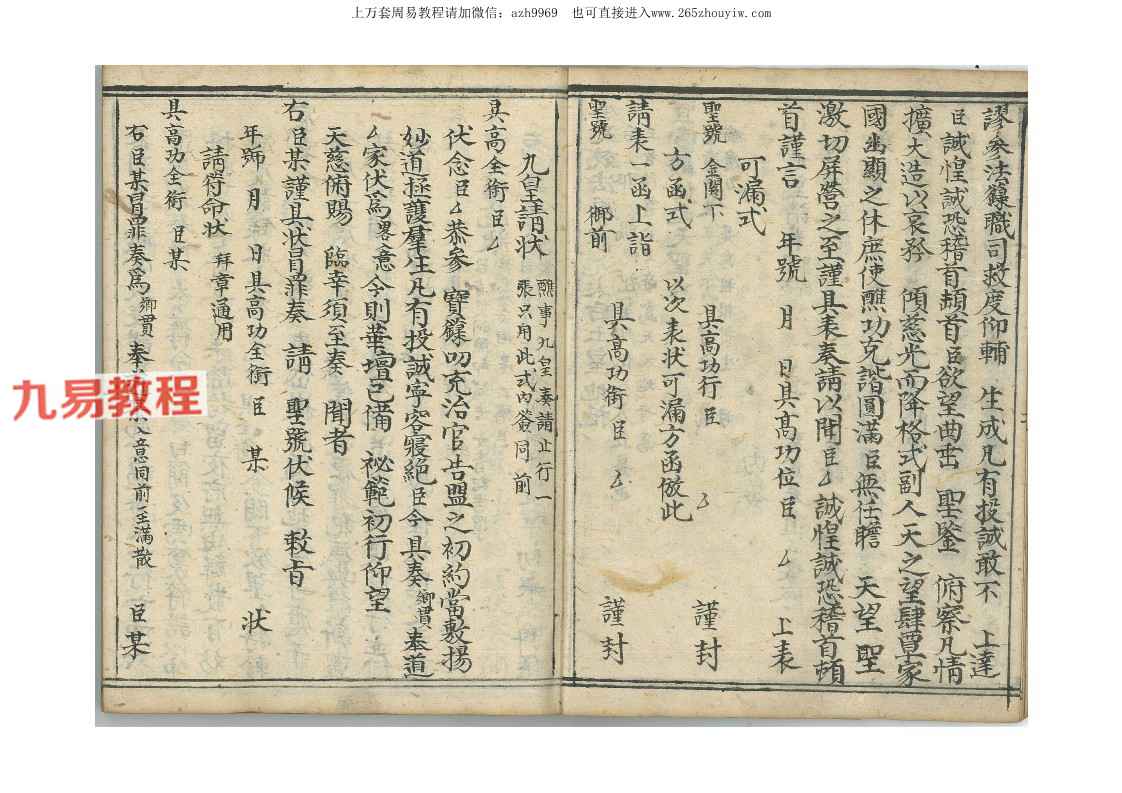 上万套周易教程请加微信：azh9969　也可直接进入www.265zhouyiw.com
謬參法籙職司救度仰輔　生成凡有投誠敢不　上達
臣誠惶誠恐稽首頓首臣欲望曲垂　聖鑒　俯察凡情
擴大造以哀矜　傾慈光而降格式副人天之望肆覃家
國幽顯之休庶使醮功克諧圓滿臣無任瞻　天望聖
激切屏營之至謹具表奏請以聞臣厶誠惶誠恐稽首頓
首謹言　年號　月　日具高功位臣　厶　上表
可漏式
聖號　金闕下　具高功行臣　厶　謹封
方函式　以次表狀可漏方函倣此
請表一函上詣　具高功銜臣　厶　謹封
聖號　御前
九皇請狀　醮事九皇奏請止行一
張只用此式內簽同前
具高全銜臣厶
伏念臣厶恭參　寶籙叨充治官告盟之初約當敷揚
妙道拯護羣生凡有投誠寧容寢絕臣今具奏鄉貫奉道
厶家伏為畧意今則華壇已備　祕範初行仰望
天慈俯賜　臨幸須至奏　聞者
右臣某謹具狀冒罪奏　請　聖號伏候　敕旨
年號　月　日具高功全銜　臣　某　狀
請符命狀　拜章通用
具高功全銜　臣某
右臣某冒罪奏為鄉貫　奉　意同前至滿散　臣某
九易教程